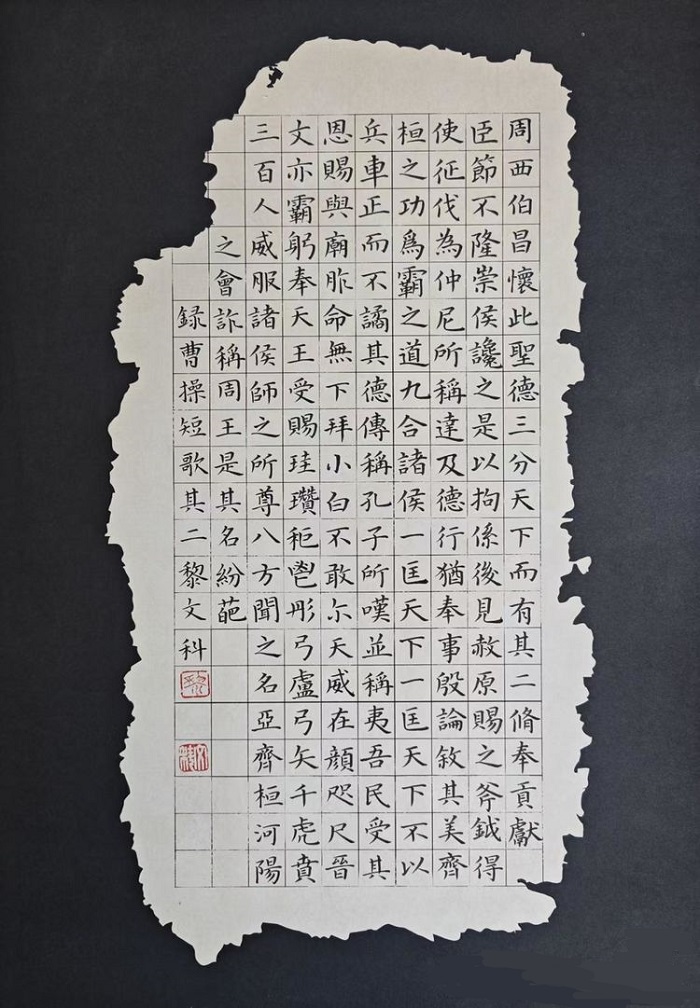 周西伯昌懷此聖德三分天下而有其二脩奉貢獻
臣節不隆崇侯讒之是以拘係後見赦原賜之斧鉞得
使征伐為仲尼所稱達及德行猶奉事殷論敘其美齊
桓之功爲霸之道九合諸侯一匡天下一匡天下不以
兵車正而不譎其德傳稱孔子所嘆並稱夷吾民受其
恩賜與廟胙命無下拜小白不敢尒天威在顏咫尺晉
文亦霸躬奉天王受賜珪瓚秬鬯彤弓盧弓矢千虎賁
三百人威服諸侯師之所尊八方聞之名亞齊桓河陽
之會詐稱周王是其名紛葩
録曹操短歌其二黎文科